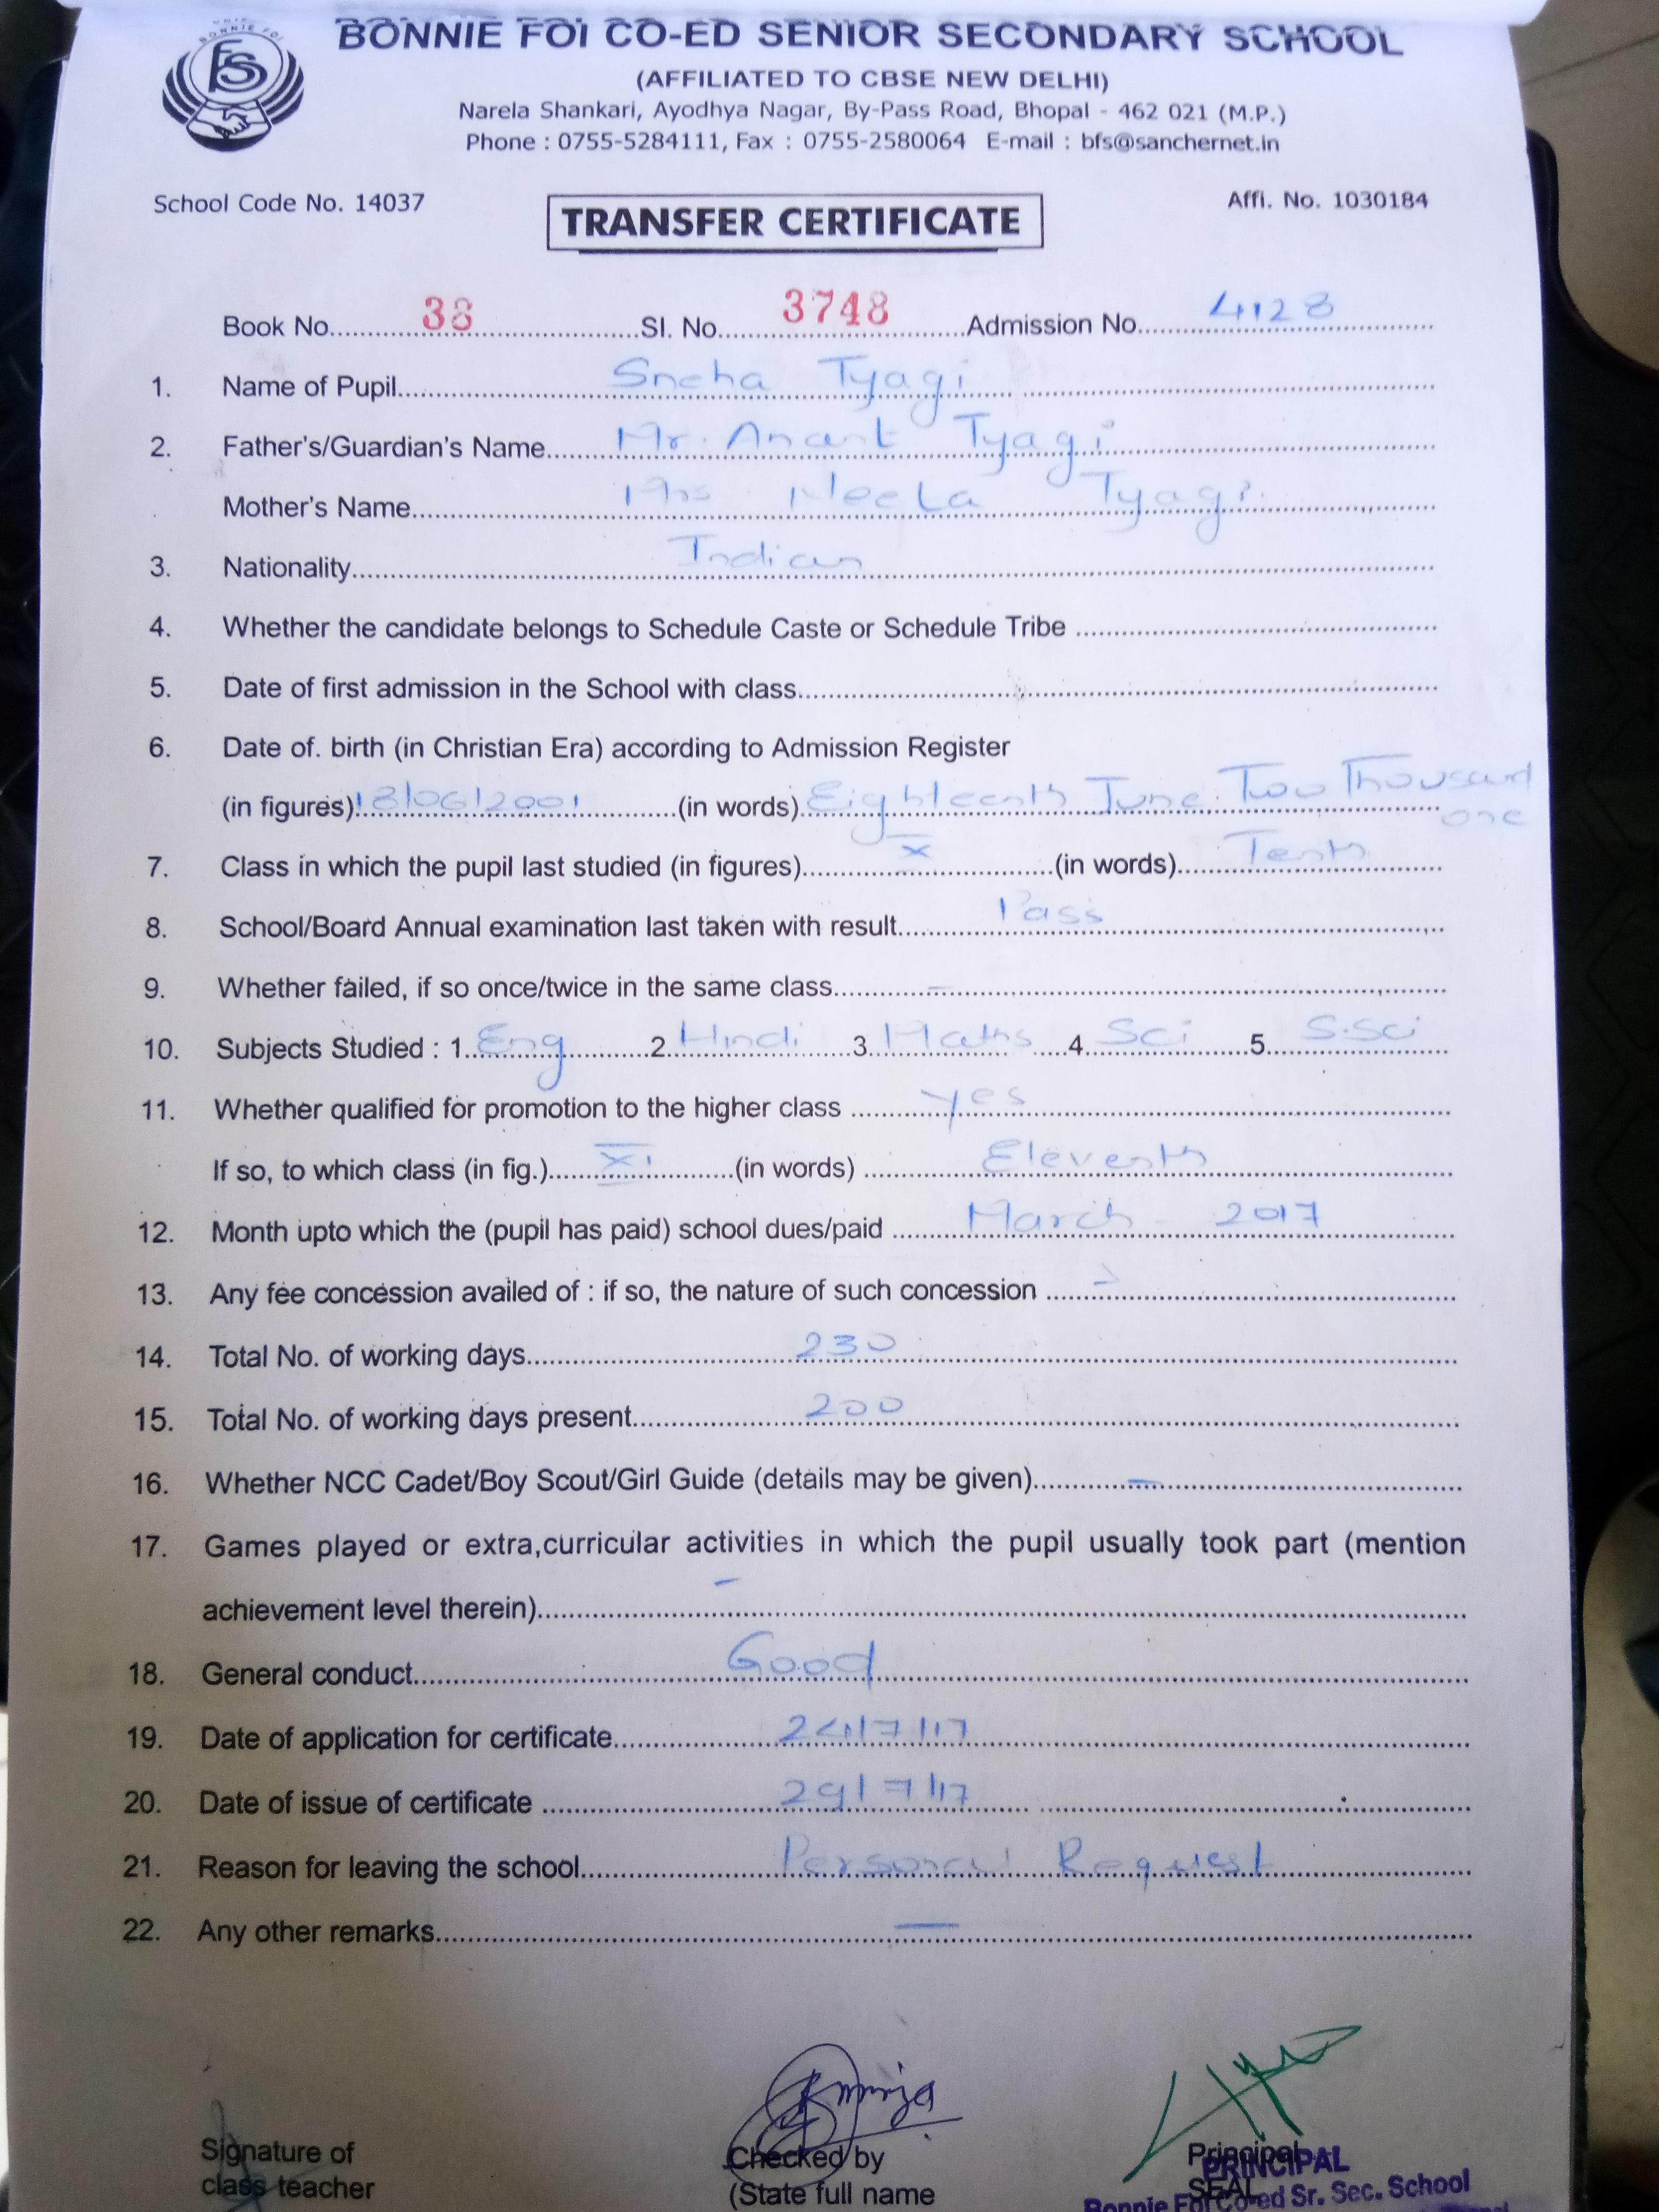 BONNIE FOI
FS
BONNIE FOI CO-ED SENIOR SECONDARY SCHOOL
(AFFILIATED TO CBSE NEW DELHI)
Narela Shankari, Ayodhya Nagar, By-Pass Road, Bhopal - 462 021 (M.P.)
Phone : 0755-5284111, Fax : 0755-2580064 E-mail : bfs@sanchernet.in
School Code No. 14037
Affi. No. 1030184
TRANSFER CERTIFICATE
Book No. 38 Sl. No. 3748 Admission No. 4128
1. Name of Pupil Sneha Tyagi
2. Father's/Guardian's Name Mr. Anant Tyagi
Mother's Name Mrs Neeta Tyagi
3. Nationality Indian
4. Whether the candidate belongs to Schedule Caste or Schedule Tribe
5. Date of first admission in the School with class
6. Date of. birth (in Christian Era) according to Admission Register
(in figures) 18/06/2001 (in words) Eighteenth June. Two Thousand one
7. Class in which the pupil last studied (in figures) X (in words) Tenth
8. School/Board Annual examination last taken with result Pass
9. Whether failed, if so once/twice in the same class –
10. Subjects Studied : 1. Eng 2. Hindi 3. Maths 4. Sci 5. S.Sci
11. Whether qualified for promotion to the higher class yes
If so, to which class (in fig.) XI (in words) Eleventh
12. Month upto which the (pupil has paid) school dues/paid March - 2017
13. Any fee concession availed of : if so, the nature of such concession –
14. Total No. of working days 230
15. Total No. of working days present 200
16. Whether NCC Cadet/Boy Scout/Girl Guide (details may be given) –
17. Games played or extra,curricular activities in which the pupil usually took part (mention
achievement level therein) –
18. General conduct Good
19. Date of application for certificate 24/7/17
20. Date of issue of certificate 29/7/17
21. Reason for leaving the school Personal Request
22. Any other remarks —
Signature of
class teacher
Checked by
(State full name
Principal
SEAL
PRINCIPAL
Bonnie Foi Co-ed Sr. Sec. School